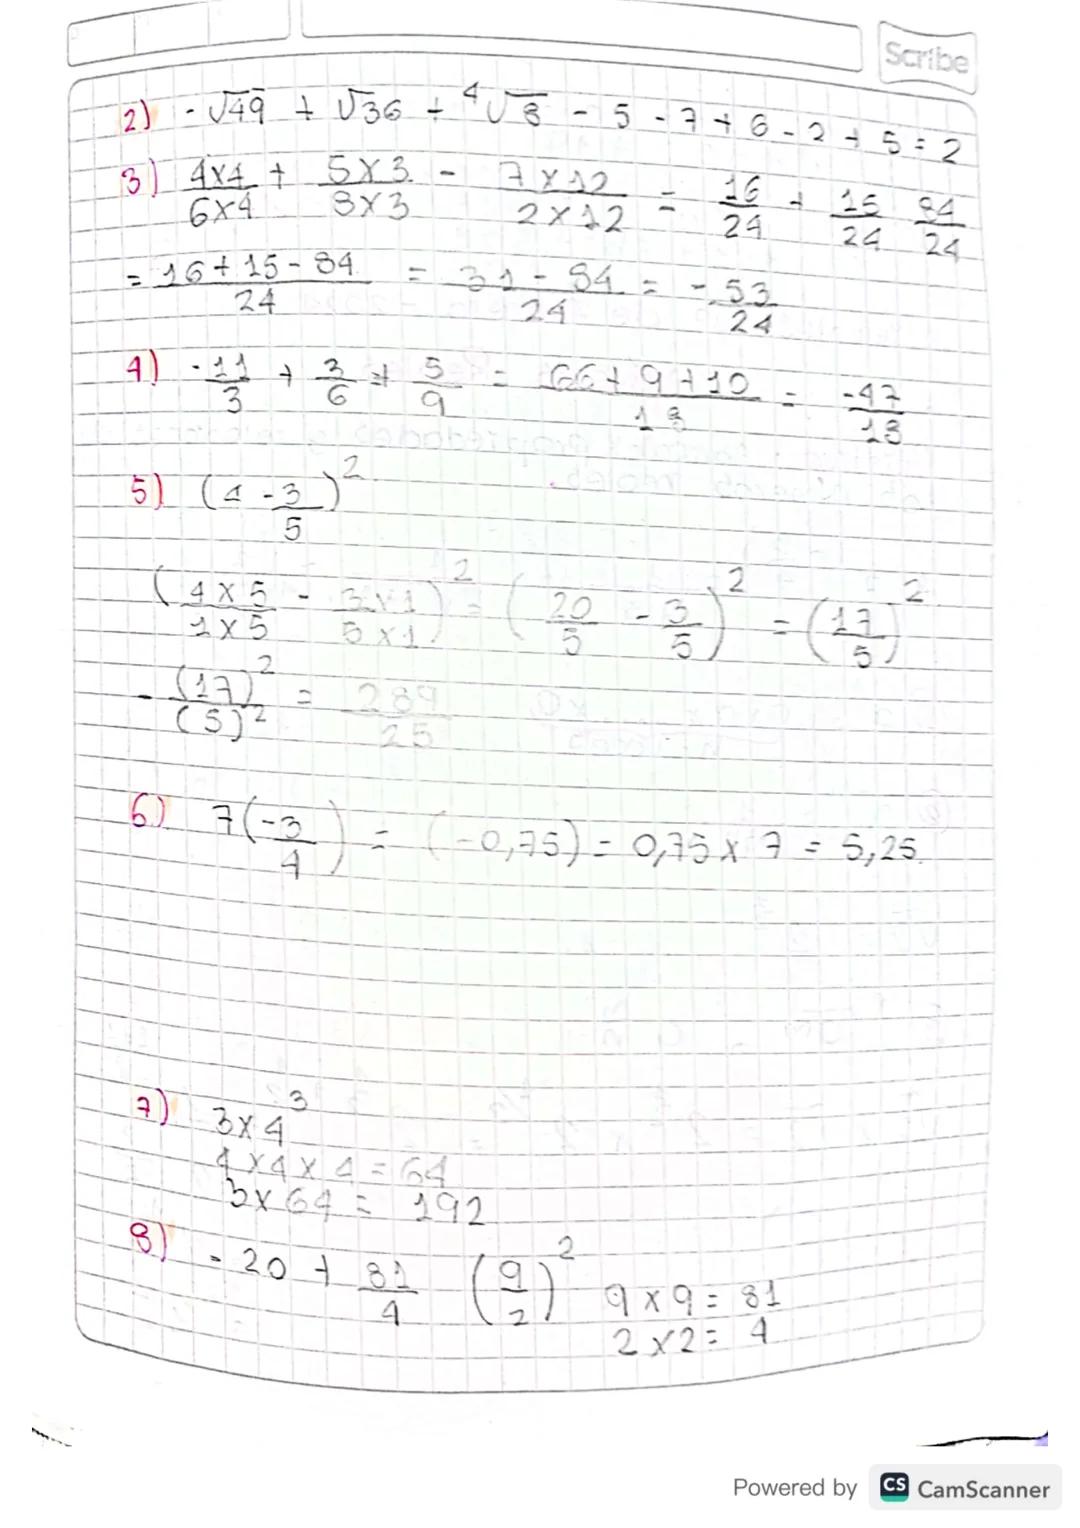 Scribe
2) -√49 + √36 + ⁴√8 - 5 - 7 + 6 - 2 + 5 = 2
3) 4x4/6x4 + 5x3/8x3 - 7x12/2x12 = 16/24 + 15/24 84/24
= 16+15-84/24 = 31-84/24 = -53/24
4) -11/3 + 3/6 + 5/9 = 66+9+10/18 = -47/18
5) (4-3/5)²
(4x5/1x5 - 3x1/5x1)² = (20/5 - 3/5)² = (17/5)²
- (17)²/(5)² = 289/25
6) 7(-3/4) = (-0,75) = 0,75 x 7 = 5,25.
7) 3x4³
4x4x4=64
3x64 = 192
8) -20 + 81/4 (9/2)² 9x9=81
2x2=4
Powered by CS CamScanner